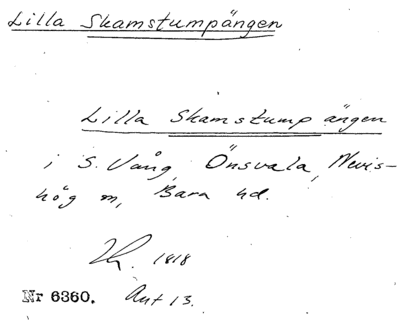 Lilla Skamstumpängen
Lilla Skamstump ängen
i S. Vång, Önsvala, Nevis-
hög sn, Bara hd.
1818
Nr 6360. Akt 13.